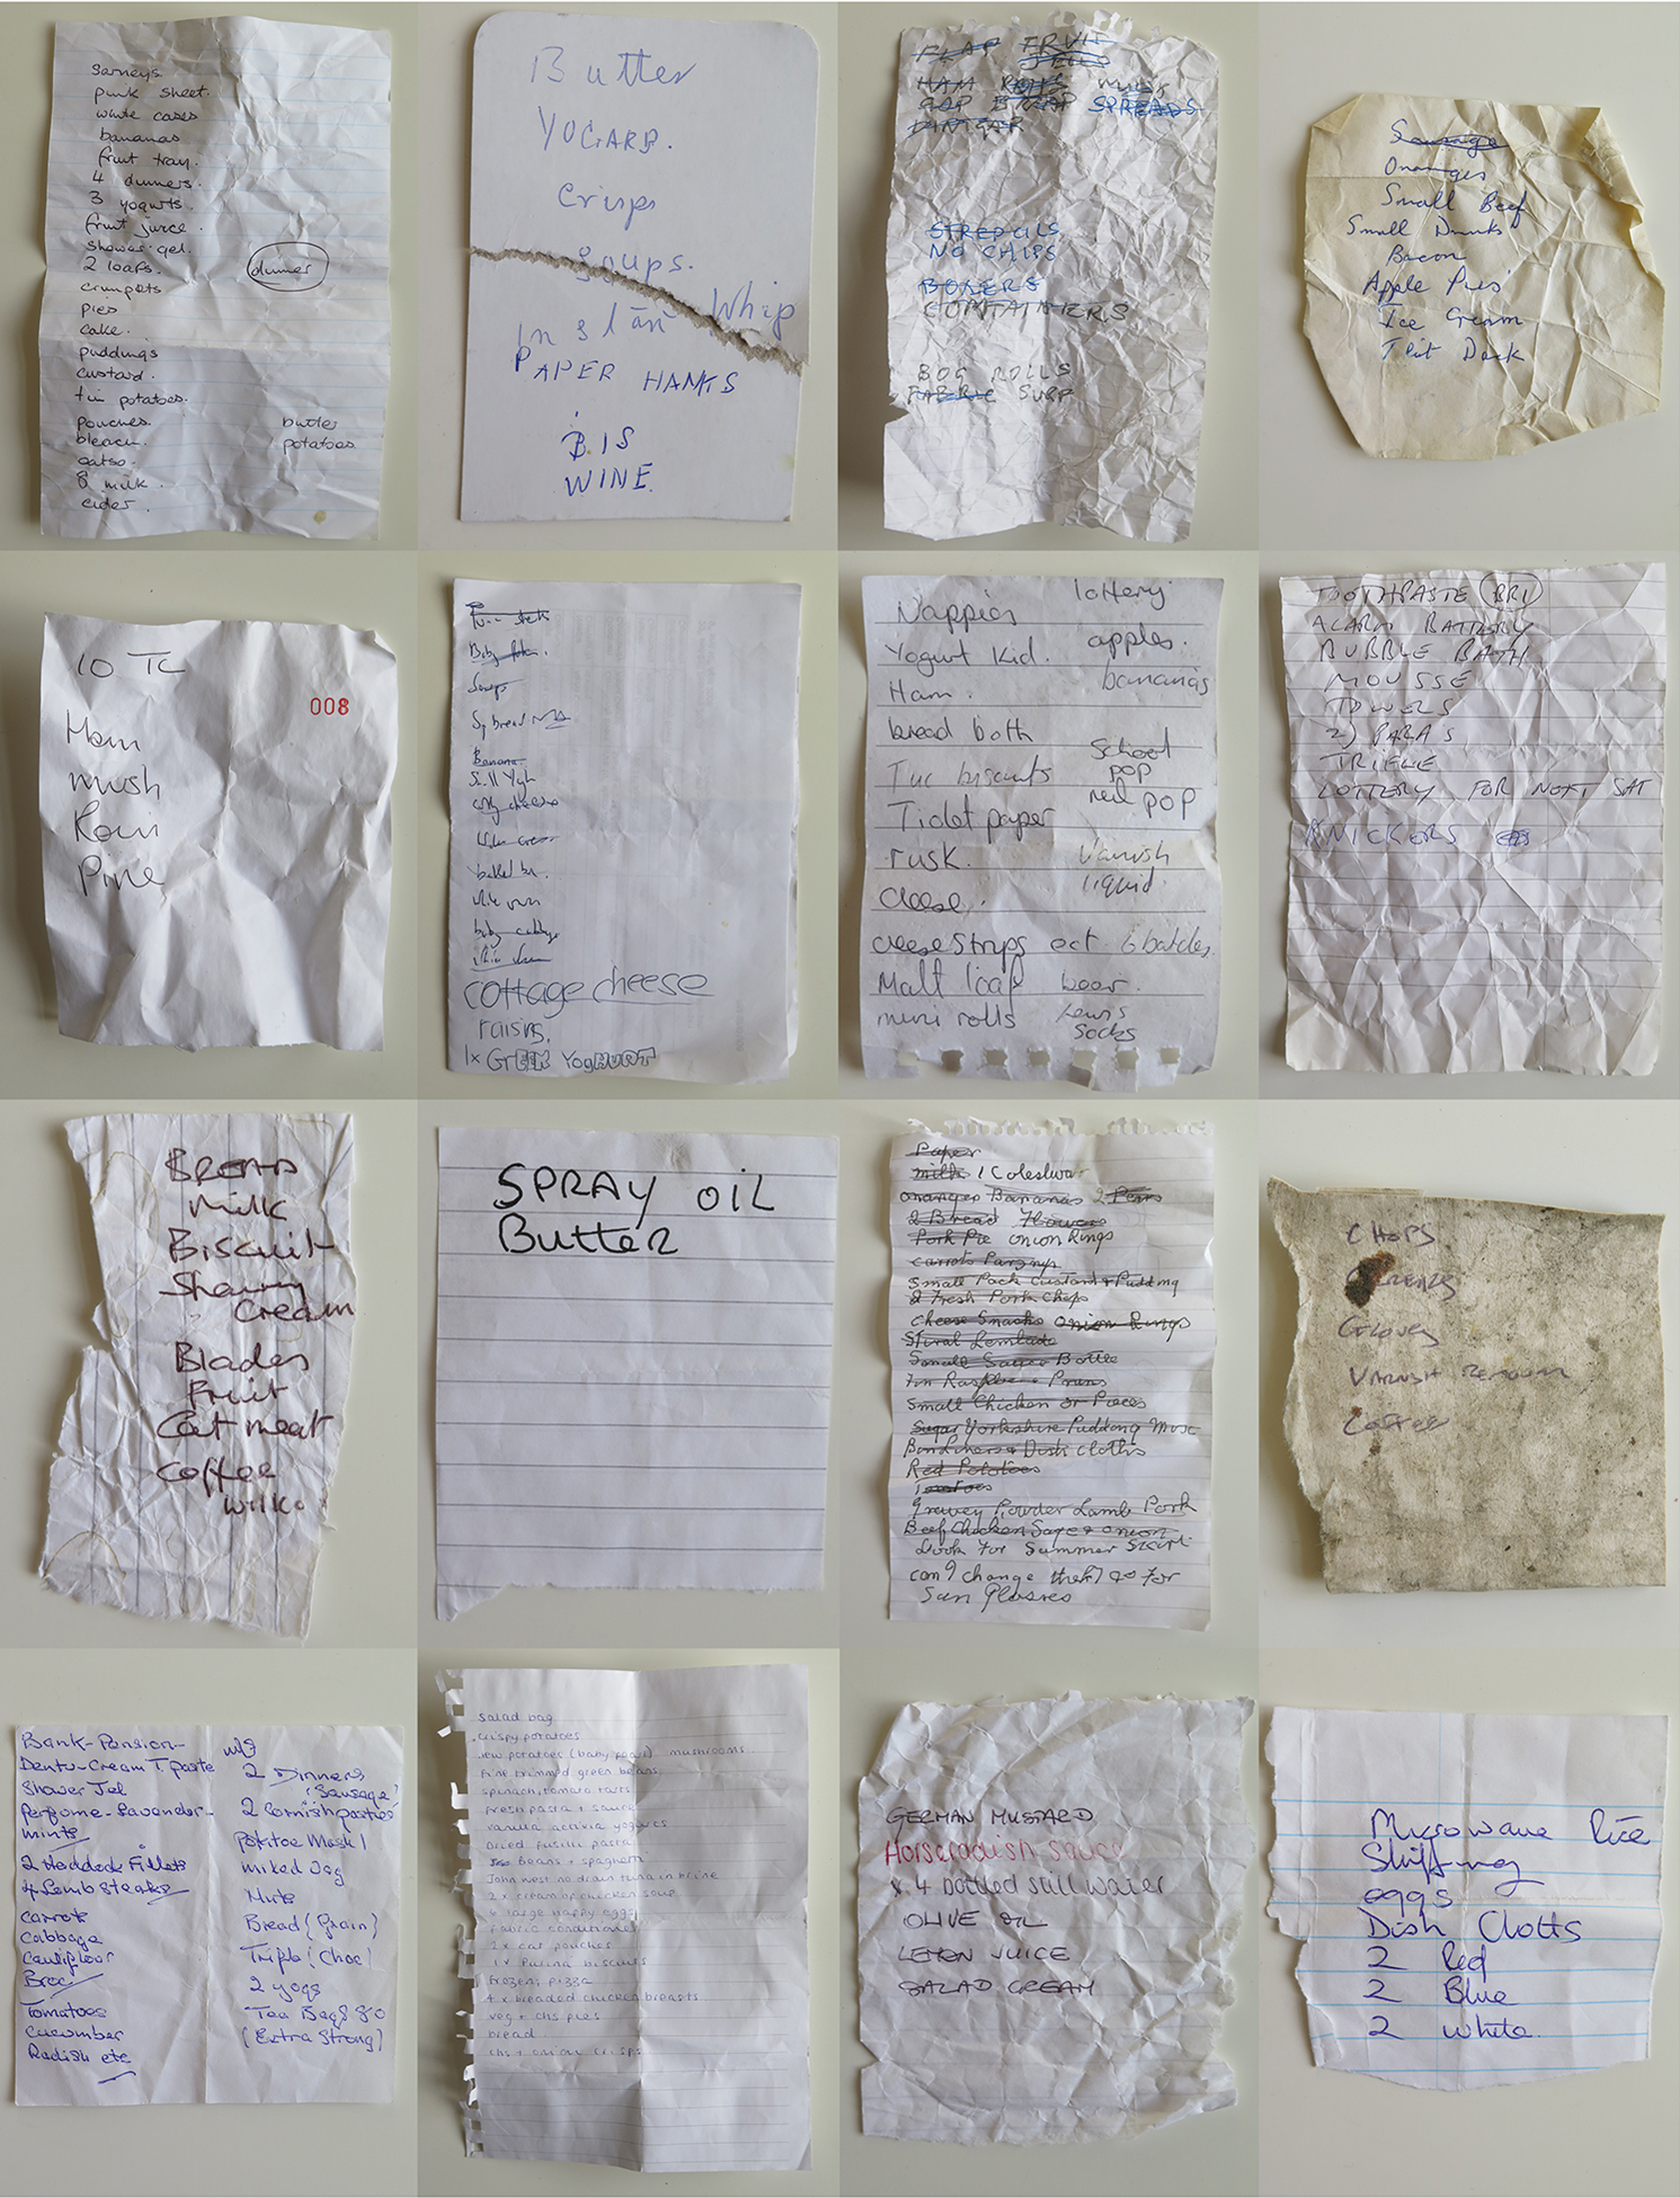 Sarneys
pink sheet.
white cases
bananas
fruit tray.
4 dinners.
3 yogurts.
fruit juice.
shower gel.
2 loafs.
dinner
crumpets
pies
cake.
puddings
custard.
tin potatoes.
pouches.
butter
bleach.
potatoes
oatso.
8 milk.
cider.
Butter
YOGARD.
Crisps
soups.
Instan Whip
PAPER HANKS
BIS
WINE.
FLAP FRUIT
HAM ROLLS MILK
SPREADS
STREPCILS
NO CHIPS
BOXERS
CONTAINERS
BOG ROLLS
FABRIC SURF
Sausage
Oranges
Small Beef
Small Drinks
Bacon
Apple Pies
Ice Cream
10 TC
008
Ham
mush
Pine
Soup
Banana
cottage cheese
raisins.
1x GrEEK YogHURT
lottery
Nappies
apples.
Yogurt Kid.
bananas
Ham.
bread both
School
pop
Tuc biscuits
red pop
Tiolet paper
rusk.
Vanish
liquid.
cleese.
cleese strips ect 6 batches
Malt loaf beer.
mini rolls Lewis
Socks
TOOTHPASTE (BRI)
ALARM BATTERY
BUBBLE BATH
MOUSSE
TOWELS
2) PARA'S
TRIFLE
LOTTERY FOR NEXT SAT
KNICKERS
BREAD
Milk
Biscuit
Shaving
Cream
Blades
Fruit
Cat meat
Coffee
Wilko
SPRAY OIL
Butter
Paper
milk 1 Coleslaw
oranges Bananas 2 Pears
2 Bread Flowers
Pork Pie onion Rings
carrots Parsnips
Small Pack Custard + Pudding
2 Fresh Pork Chops
cheese Snacks onion Rings
Small Sauce Bottle
Tin Raspberrie Pruns
Small Chicken or Pieces
Sugar Yorkshire Pudding Mixe
Binliners + Dish cloths
Red Pototoes
Tomatoes
gravey Powder Lamb Pork
Beef Chicken Sage + onion
Look for Summer Skirt
can I change the 7.90 for
Sun Glasses
CHOPS
Gloves
VARNISH REMOVER
Coffee
Bank-Pension-
Dentu-Cream T. Paste
Shower Jel
Perfome-Lavender-
mints
2 Haddock Fillets
4 Lamb Steaks
Carrots
Cabbage
Caulifloor
Broc
Tomatoes
Cucumber
Radish etc
2 Dinners
(Sausage)
2 Cornish pasties
Potatoe Mash 1
mixed Veg
Nuts
Bread (Grain)
Trifle (Choc)
2 yogs
Tea Bags 80
(Extra Strong)
salad bag
crispy potatoes
new potatoes (baby pearl) mushrooms
fine trimmed green beans
spinach, tomato tarts
fresh pasta + sauce
vanilla activia yogurts
Dried fusilli pasta
Beans + spaghetti
John west no drain tuna in brine
2 x cream of chicken soup
6 large happy eggs
fabric conditioner
2 x cat pouches
1 x Purina biscuits
frozen pizza
4 x breaded chicken breasts
veg + chs pies
bread
chs + onion crisps
GERMAN MUSTARD
Horseradish sauce
x 4 bottled still water
OLIVE OIL
LEMON JUICE
SALAD CREAM
Microwave Rice
Stuffing
eggs
Dish Clotts
2 Red
2 Blue
2 White.